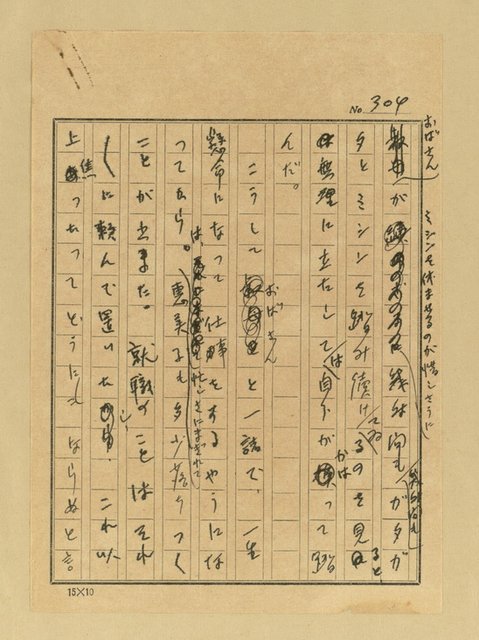 No. 304
おばさん ミシンを休ませるのが惜しさうに
が 幾時間も ガタガ
タとミシンを踏み続けてゐるのを見ると、
無理に立たしては自分がかはって踏
んだ。
こうしておばさんと一諸で、一生
懸命になって仕事をするやうにな
ってから。
は、忙しさにまぎれて
恵美子も多少落ちつく
ことが出来た。就職のことはそれ
に頼んで置いたし、これ以
上焦ったってどうにもならぬと言
15×10